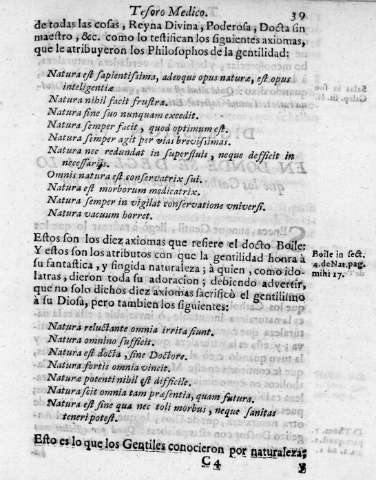 Tesoro Medico. 39
de todas las cosas, Reyna Divina, Poderosa, Docta sin
maestro, &c. como lo testifican los siguientes axiomas,
que le atribuyeron los Philosophos de la gentilidad:
Natura est sapientissima, adeoque opus naturæ, est opus
inteligentiæ
Natura nihil facit frustra.
Natura fine suo nunquam excedit.
Natura semper facit, quod optimum est.
Natura semper agit per vias brevissimas.
Natura nec redundat in superfluis, neque defficit in
necessarijs.
Omnis natura est conservatrix sui.
Natura est morborum medicatrix.
Natura semper in vigilat conservatione universi.
Natura vacuum horret.
Estos son los diez axiomas que refiere el docto Boile:
Y estos son los atributos con que la gentilidad honra à
su fantastica, y fingida naturaleza; à quien, como ido-
latras dieron toda su adoracion; debiendo advertir,
que no solo dichos diez axiomas sacrificò el gentilismo
à su Diosa, pero tambien los siguientes:
Boile in sect.
4. de Nat. pag.
mihi 17.
Natura reluctante omnia irrita fiunt.
Natura omnino sufficit.
Natura est docta, sine Doctore.
Natura fortis omnia vincit.
Naturæ potenti nihil est difficile.
Natura scit omnia tam præsentia, quam futura.
Natura est sine qua nec toli morbus, neque sanitas
teneri potest.
Esto es lo que los Gentiles conocieron por naturaleza;
C4 y